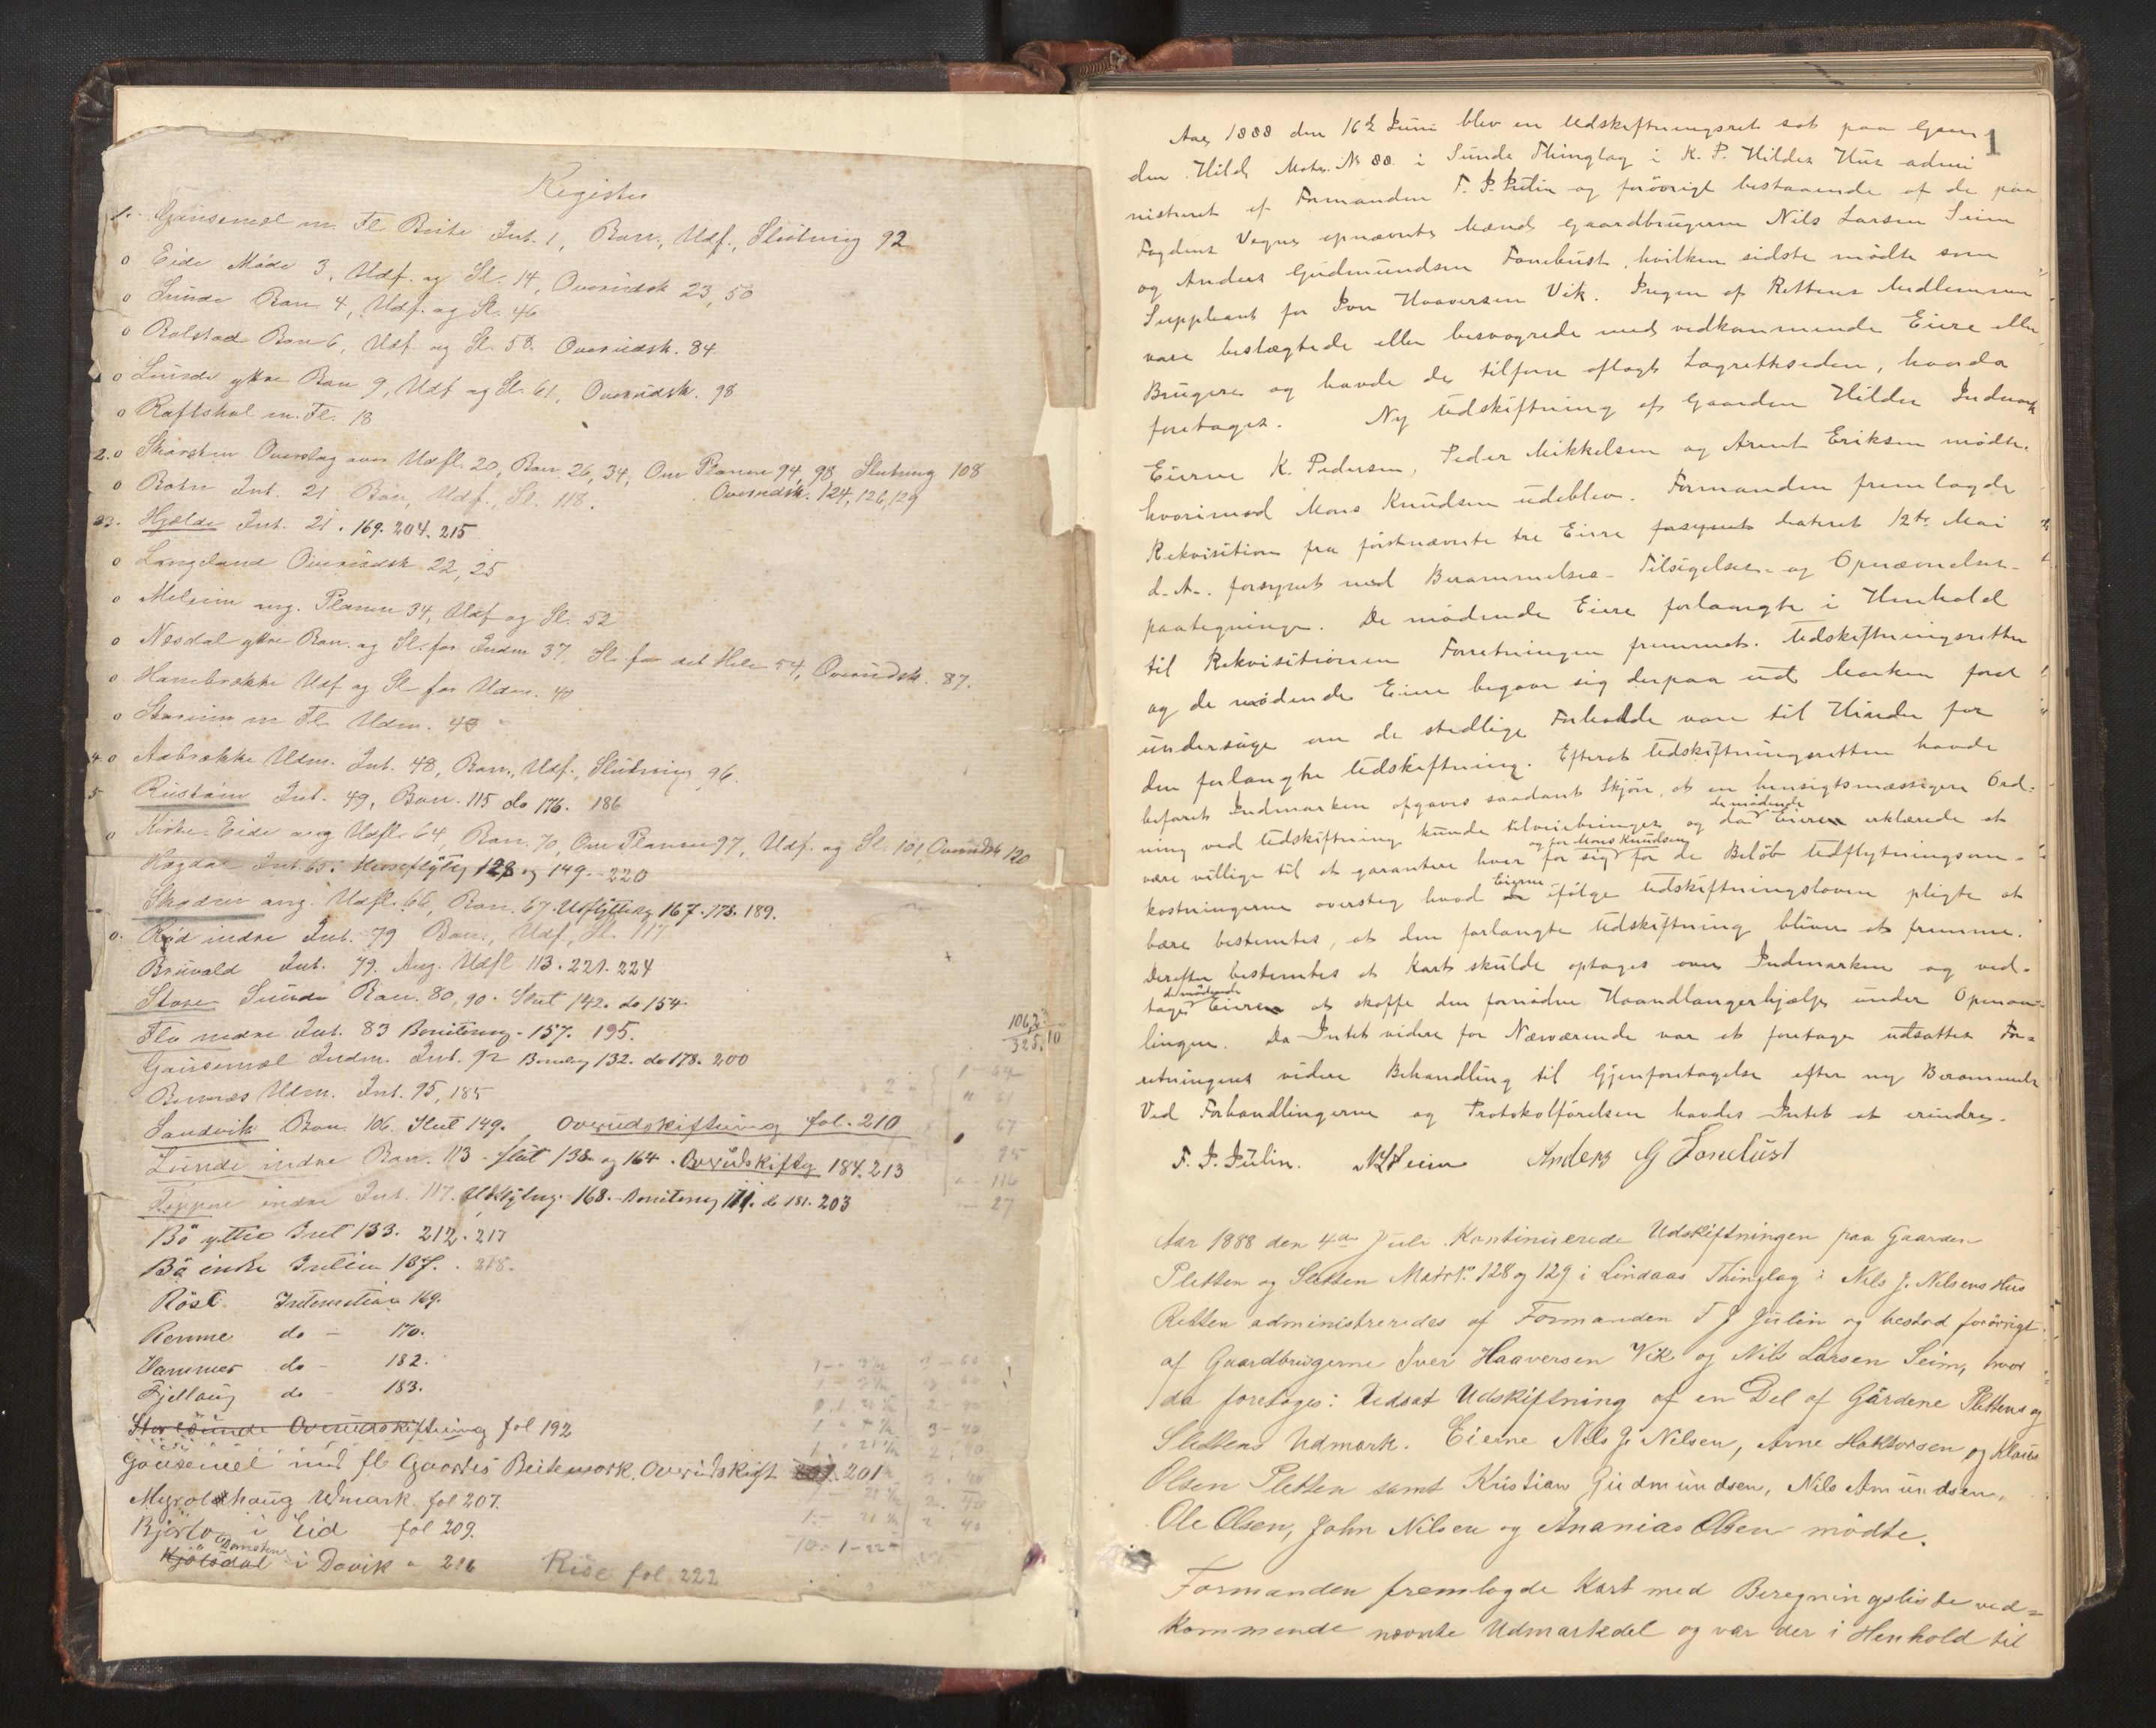 Register
1. Gausemel m. Fl Beite Int. 1, Bon., Udf., Slutning 92
o Eide Møde 3, Udf. og Sl. 14, Overudsk 23, 50
o Sunde Bon 4, Udf. og Sl. 46
o Rolstad Bon 6, Udf. og Sl. 58. Overudsk. 84
o Lunde ytre Bon 9, Udf og Sl. 61, Overudsk. 98
o Raftskol m. Fl. 18
2. o Skarsten Overslag over Udfl. 20, Bon. 26, 34, Om Planen 94, 98 Slutning 108
Overudsk. 124, 126, 129
o Int. 21 Bon, Udf., Sl. 118.
3. Hjelde Int. 21. 169. 204. 215
o Langeland Overudsk 22, 25
o Melheim ang. Planen 34, Udf og Sl. 52
o Nesdal ytre Bon. og Sl. for Indm 37, Sl. for det Hele 54, Overudsk. 87.
o Hanebrække Udf og Sl for Udm. 40
o m Fl. Udm. 43
4. o Aabrække Udm. Int. 48, Bon., Udf., Slutning 96.
5 Rustøen Int. 49, Bon. 115 do 176. 186
o Kirke-Eide ang Udfl. 64, Bon. 70, Om Planen 97, Udf. og Sl. 101, Overudsk 120
Hogdal Int. 65. 128 og 149. - 220
Skaden ang. Udfl. 66, Bon. 67. Udflytting 167. 178. 189.
o. Rød indre Int. 79 Bon., Udf., Sl. 117
Bruvold Int. 79. Ang. Udfl 113. 221. 224
Store Sunde Bon. 80, 90. Slut 142. do 154.
Flo nedre Int. 83 Bonitering. 157. 195.
Gausemel Indm. Int. 92 132. do 178. 200
Udm. Int. 95, 185
Sandvik Bon. 106. Slut 149. Overudskiftning fol. 210
Lunde indre Bon. 113 - slut 138 og 164. Overudskiftg 184. 213
indre Int. 117. 168. - Bonitering 171. do 181. 203
Bö yttre Int 133. 212. 217
Bö indre 137. . 218.
Röst. 169.
Renme do - 170.
Hammer do - 182.
Fjellaug do - 183.
Storesunde Overudskiftning fol 192
Gausemel med fl Gaardes Beitemark. Overudskift 201
Myroldhaug Udmark fol 207.
Bjørlo i Eid fol 209.
Kjölsdal i Davik " 216 Rise fol 222
1
Aar 1888 den 16de Juni blev en Udskiftningsret sat paa Gaar-
den Hilde Matr. No 88 i Sunde Thinglag i K. P. Hildes Hus admi
nistreret af Formanden F. J. Julin og forövrigt bestaaende af de paa
Fogdens Vegne opnævnte Mænd Gaardbrugerne Nils Larsen Seim
og Anders Gudmundsen Fonebust, hvilken sidste mödte som
Suppleant for Iver Haaversen Vik. Ingen af Rettens Medlemmer
vare beslægtede eller besvogrede med vedkommende Eiere eller
Brugere og havde de tilforn aflagt Lagretteseden, hvorda
foretoges. Ny Udskiftning af Gaarden Hildes Indmark
Eierne K. Pedersen, Peder Mikkelsen og Arent Eriksen mödte.
hvorimod Mons Knudsen udeblev. Formanden fremlagde
Rekvisition fra förstnævnte tre Eiere forsynet dateret 12te Mai
d. A. forsynet med Berammelses- Tilsigelses- og Opnævnelses-
paategninger. De mödende Eiere forlangte i Henhold
til Rekvisitionen Forretningen fremmet. Udskiftningsretten
og de mödende Eiere begav sig derpaa ud i Marken forat
undersöge om de stedlige Forholde vare til Hinder for
den forlangte Udskiftning. Efterat Udskiftningsretten havde
befaret Indmarken afgaves saadant Skjön, at en hensigtsmæssigere Ord-
ning ved Udskiftning kunde tilveiebringes og da de mödende Eiere erklærede at
være villige til at garantere hver for sig og for Mons Knudsen for de Belöb Udflytningsom-
kostningerne oversteg hvad Eierne ifölge Udskiftningsloven pligte at
bære bestemtes, at den forlangte Udskiftning bliver at fremme.
Derefter bestemtes at Kart skulde optages over Indmarken og ved-
toges de mödende Eiere at skaffe den fornödne Haandlangerhjælp under Opmaa-
lingen. Da Intet videre for Nærværende var at foretage udsattes For-
retningens videre Behandling til Gjenforetagelse efter ny Berammelse
Ved Forhandlingerne og Protokolförelsen havdes Intet at erindre.
F. J. Julin. N L Seim Anders G Fonebust
Aar 1888 den 4de Juli Kontinuerede Udskiftningen paa Gaarden
Pletten og Sletten Matr No. 128 og 129 i Lindaas Thinglag i Nils J. Nilsens Hus
Retten administreredes af Formanden F J Julin og bestod forövrigt
af Gaardbrugerne Iver Haaversen Vik og Nils Larsen Seim, hvor
da foretoges: Udsat Udskiftning af en Del af Gårdene Plettens og
Slettens Udmark. Eierne Nils J. Nilsen, Arne Haktorsen og Klaus
Olsen Pletten samt Kristian Gudmundsen, Nils Amundsen,
Ole Olsen, John Nilsen og Ananias Olsen mödte.
Formanden fremlagde Kart med Beregningsliste ved-
kommende nævnte Udmarksdel og var der i Henhold til